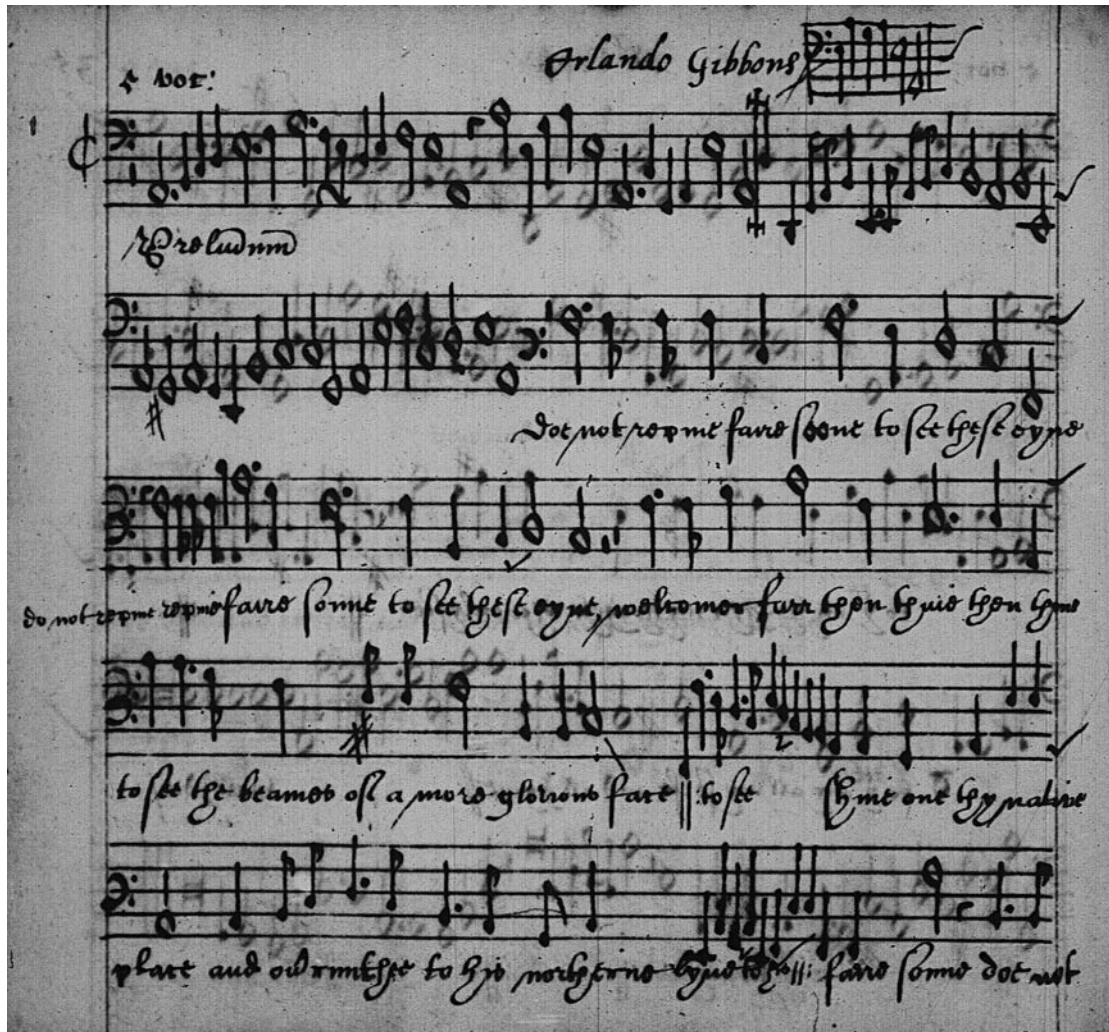 Orlando Gibbons
5 voc:
1
Preludium
doe not repine faire sonne to see these eyne
do not repine repine faire sonne to see these eyne, welcomer farr then thine then thine
to see the beames of a more glorious face || : to see shine one thy native
place and to his northerne ||: faire sonne doe not